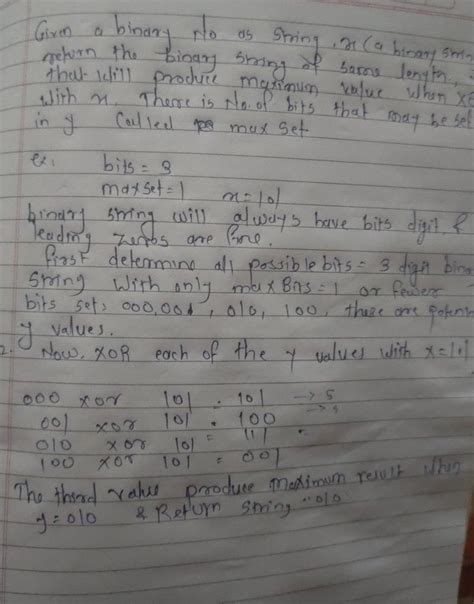 Given a binary No as string, x (a binary strin
return the binary string of same length,
that will produce maximum value when XO
with x. There is No. of bits that may be set
in y called max set
ex: bits = 3
maxset = 1 x = 101
binary string will always have bits digit, &
leading zeros are fine.
first determine all possible bits = 3 digit bina
string with only maxBits = 1 or fewer
bits set, 000, 001, 010, 100, these are poten
y values.
2. Now, XOR each of the y values with x = 101
000 xor 101 = 101 → 5
001 xor 101 = 100 → 4
010 xor 101 = 111
100 xor 101 = 001
The third value produce maximum result when
y = 010 & Return string "010